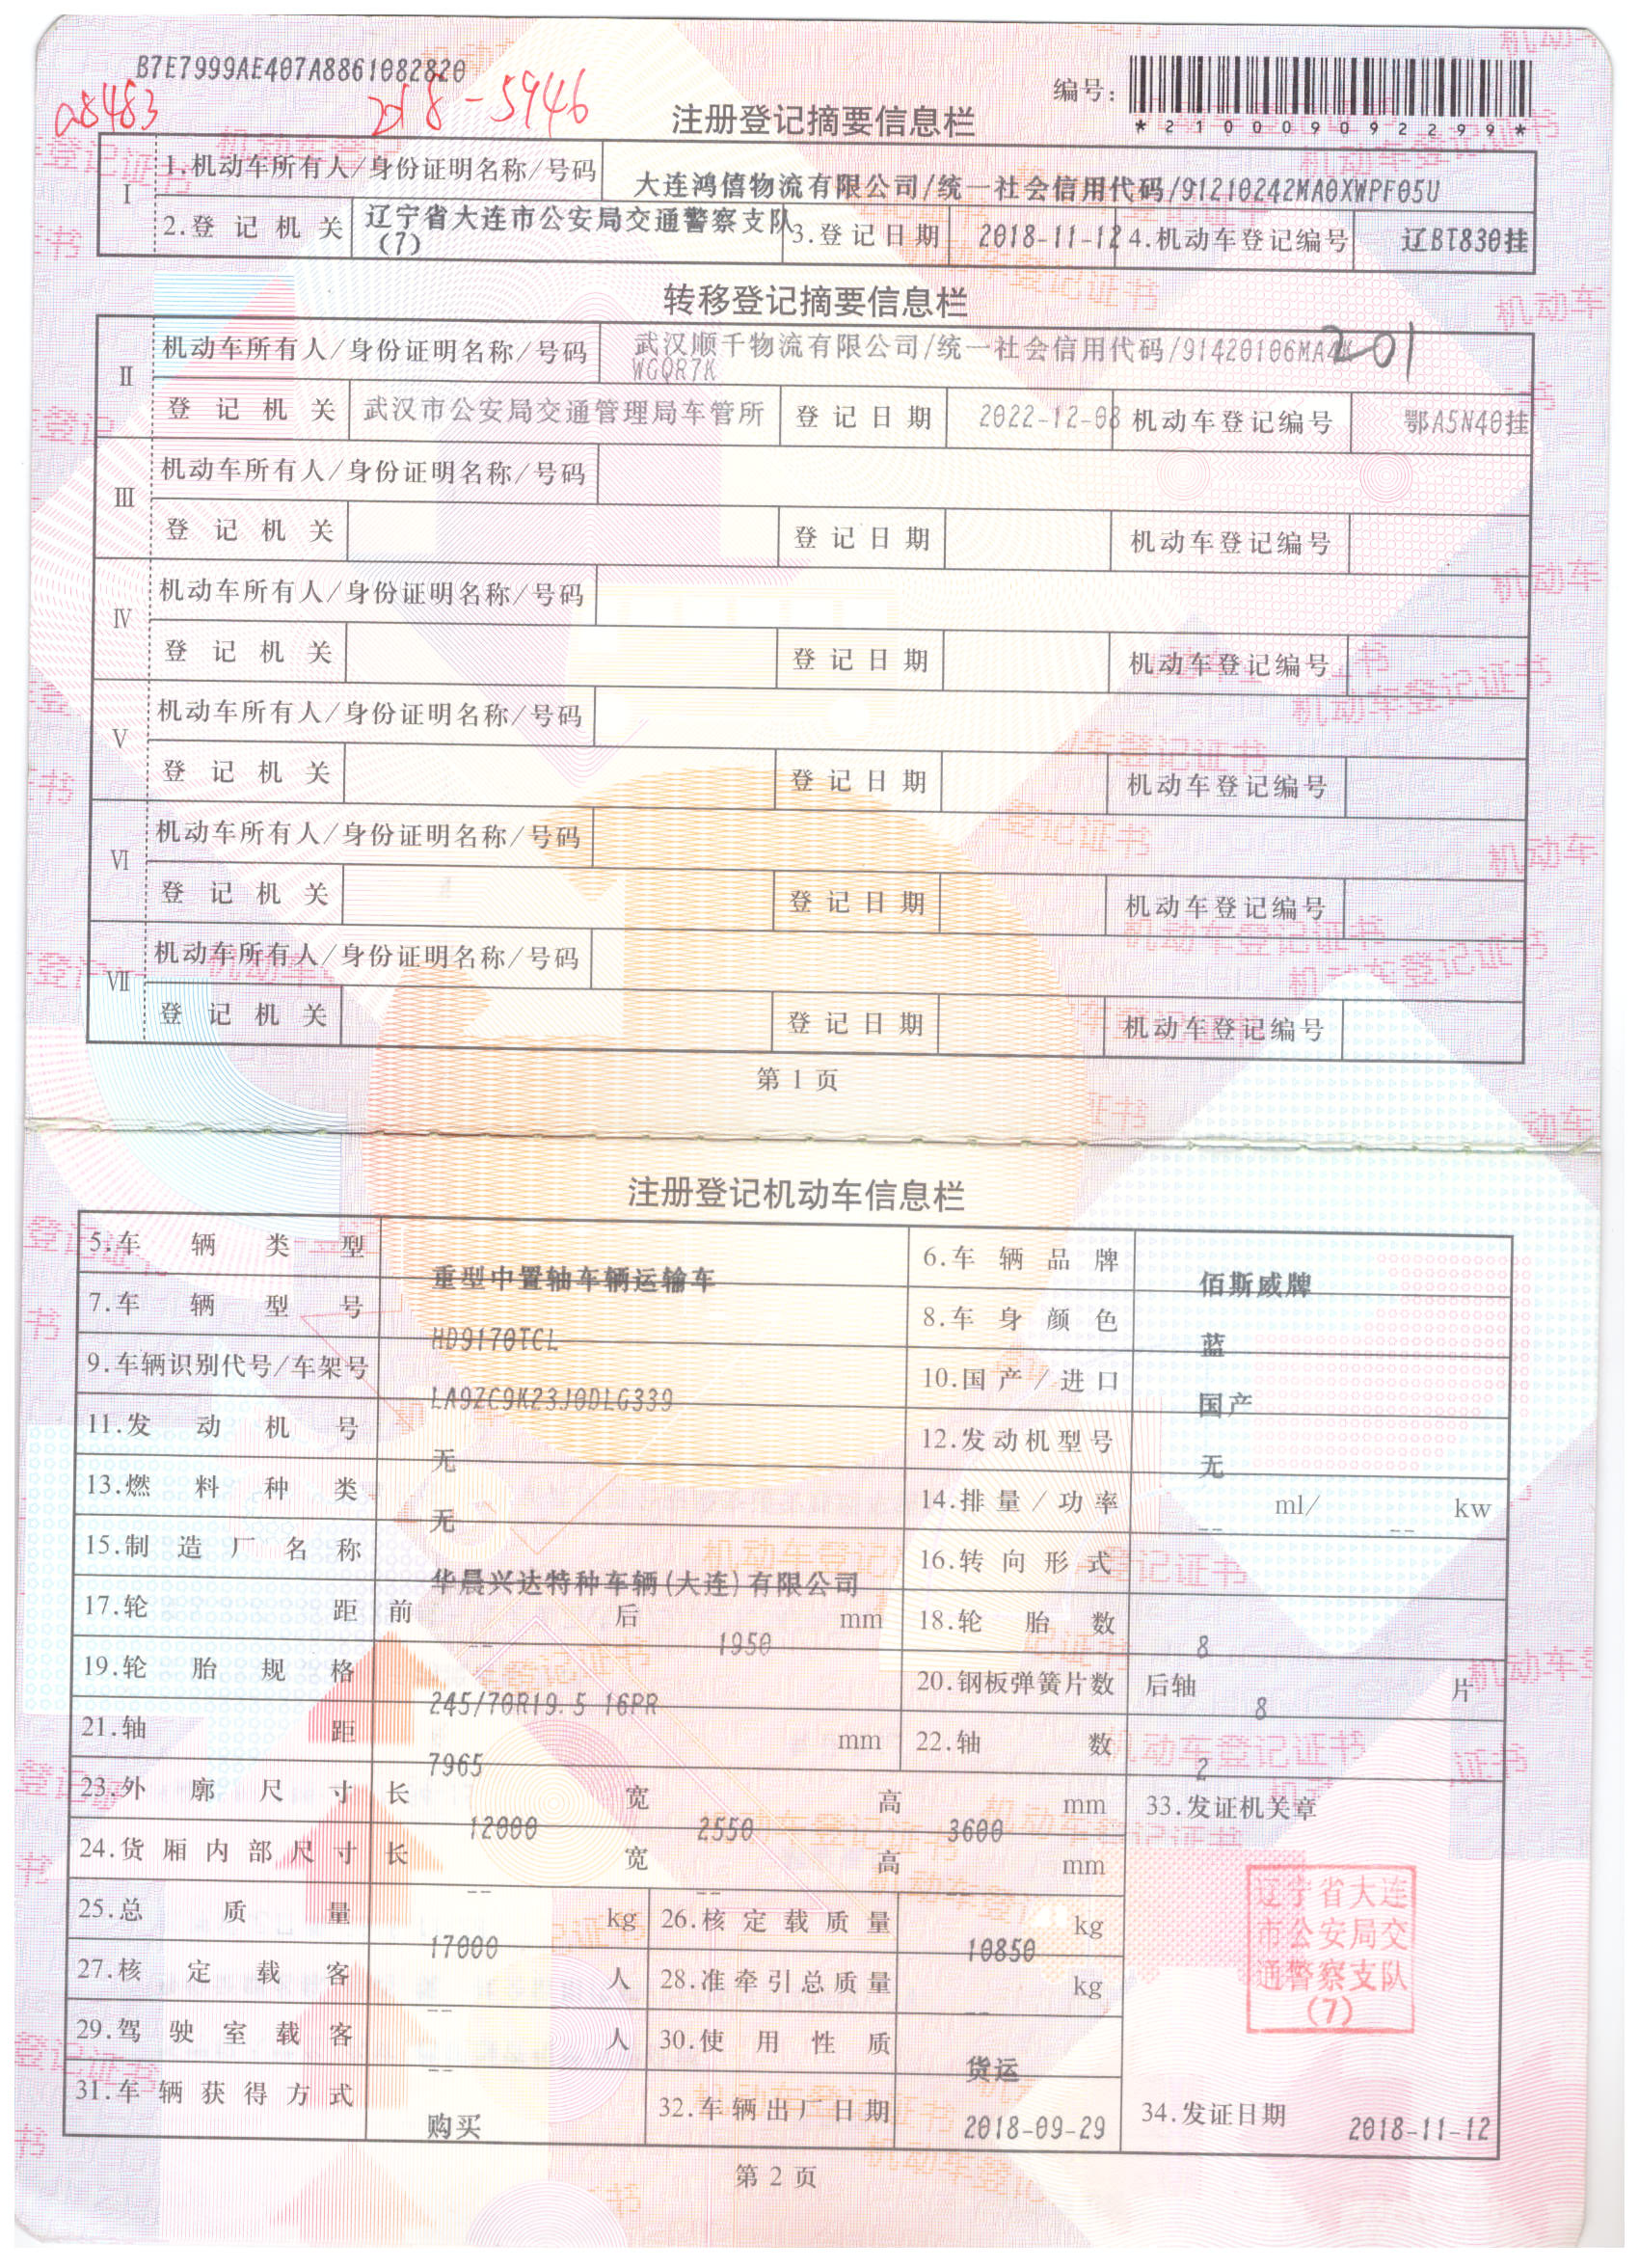 B7E7999AE407A8861082820
a8483
2018-5946
编号：
*210009092299*
注册登记摘要信息栏
I
1.机动车所有人/身份证明名称/号码 大连鸿僖物流有限公司/统一社会信用代码/91210242MA0XWPF05U
2.登记机关 辽宁省大连市公安局交通警察支队(7) 3.登记日期 2018-11-12 4.机动车登记编号 辽BT830挂
转移登记摘要信息栏
II
机动车所有人/身份证明名称/号码 武汉顺千物流有限公司/统一社会信用代码/91420106MA4K
WGQR7K
201
登记机关 武汉市公安局交通管理局车管所 登记日期 2022-12-08 机动车登记编号 鄂A5N40挂
III
机动车所有人/身份证明名称/号码
登记机关 登记日期 机动车登记编号
IV
机动车所有人/身份证明名称/号码
登记机关 登记日期 机动车登记编号
V
机动车所有人/身份证明名称/号码
登记机关 登记日期 机动车登记编号
VI
机动车所有人/身份证明名称/号码
登记机关 登记日期 机动车登记编号
VII
机动车所有人/身份证明名称/号码
登记机关 登记日期 机动车登记编号
第1页
注册登记机动车信息栏
5.车辆类型 重型中置轴车辆运输车 6.车辆品牌 佰斯威牌
7.车辆型号 HD9170TCL 8.车身颜色 蓝
9.车辆识别代号/车架号 LA9ZC9K23J0DLG339 10.国产/进口 国产
11.发动机号 无 12.发动机型号 无
13.燃料种类 无 14.排量/功率 -- ml/ -- kw
15.制造厂名称 华晨兴达特种车辆(大连)有限公司 16.转向形式
17.轮距 前 -- 后 1950 mm 18.轮胎数 8
19.轮胎规格 245/70R19.5 16PR 20.钢板弹簧片数 后轴 8 片
21.轴距 7965 mm 22.轴数 2
23.外廓尺寸 长 12000 宽 2550 高 3600 mm 33.发证机关章
24.货厢内部尺寸 长 -- 宽 -- 高 -- mm
25.总质量 17000 kg 26.核定载质量 10850 kg
27.核定载客 -- 人 28.准牵引总质量 -- kg
29.驾驶室载客 -- 人 30.使用性质 货运
辽宁省大连
市公安局交
通警察支队
(7)
31.车辆获得方式 购买 32.车辆出厂日期 2018-09-29 34.发证日期 2018-11-12
第2页